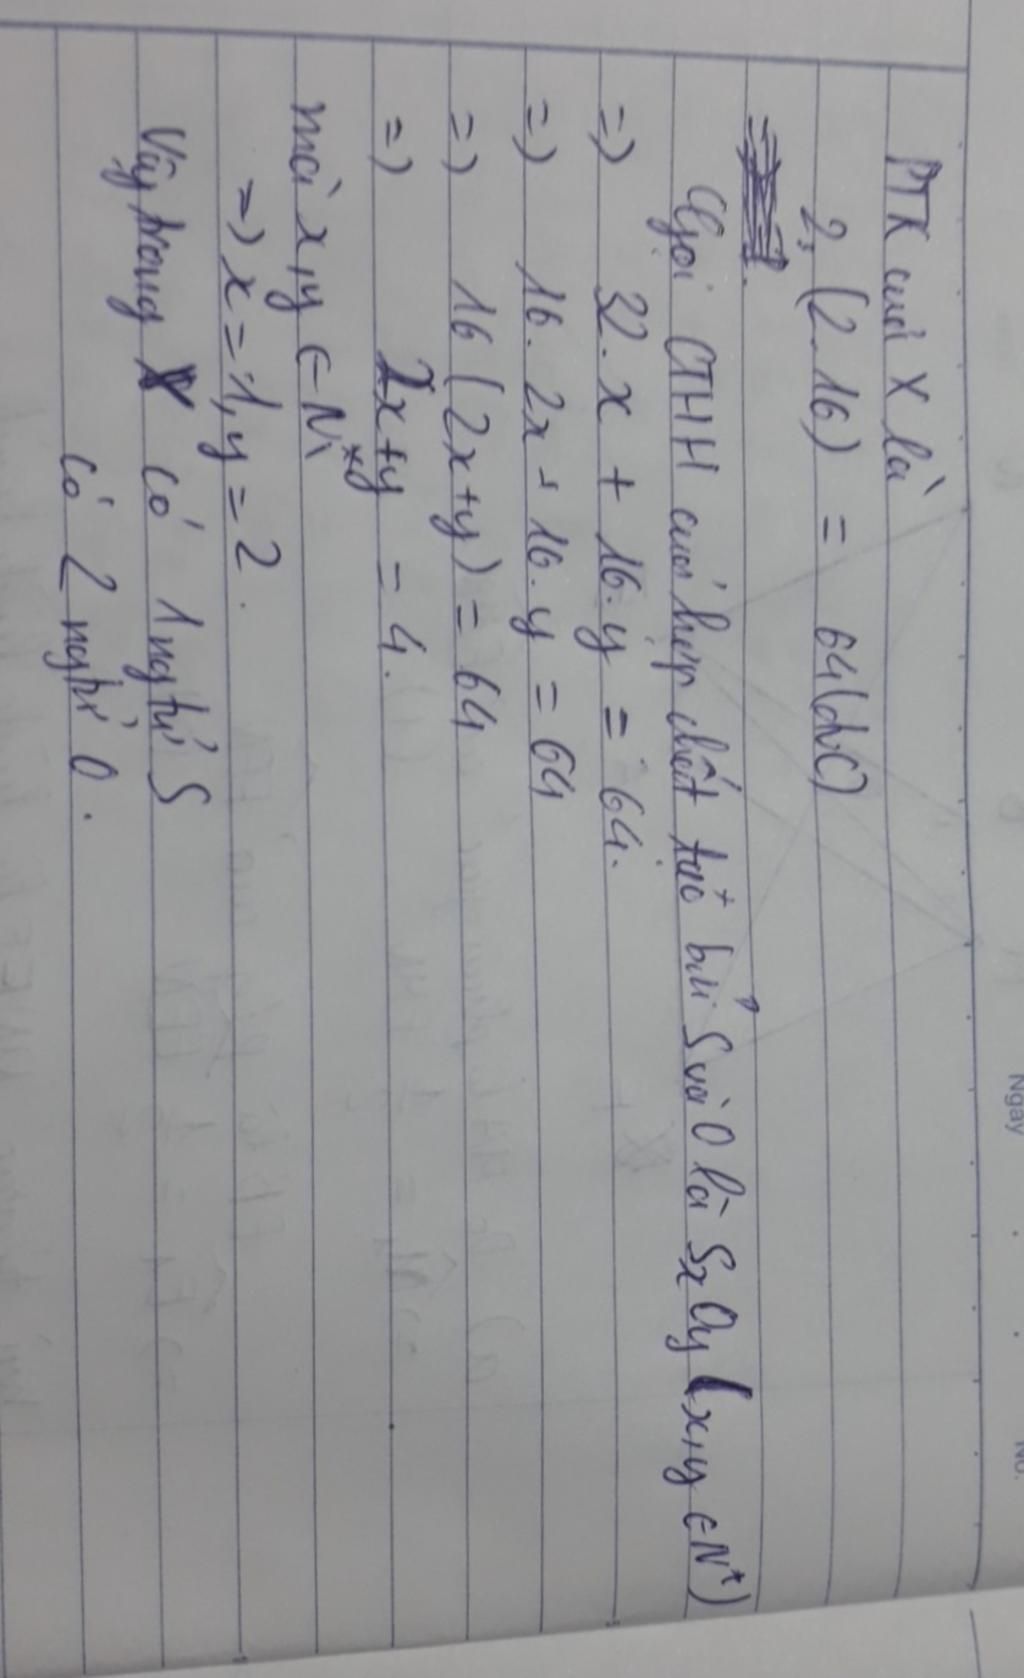 Ngày
No.
PTK của X là
2. (2.16) = 64(đvC)
Gọi CTHH của hợp chất tạo bởi S và O là SxOy (x,y ∈ N*)
=) 32.x + 16.y = 64.
=) 16.2x + 16.y = 64
=) 16(2x+y) = 64
=) 2x+y = 4.
mà x,y ∈ N*
=) x=1, y=2.
Vậy trong X có 1 ngtử S
có 2 ngtử O.